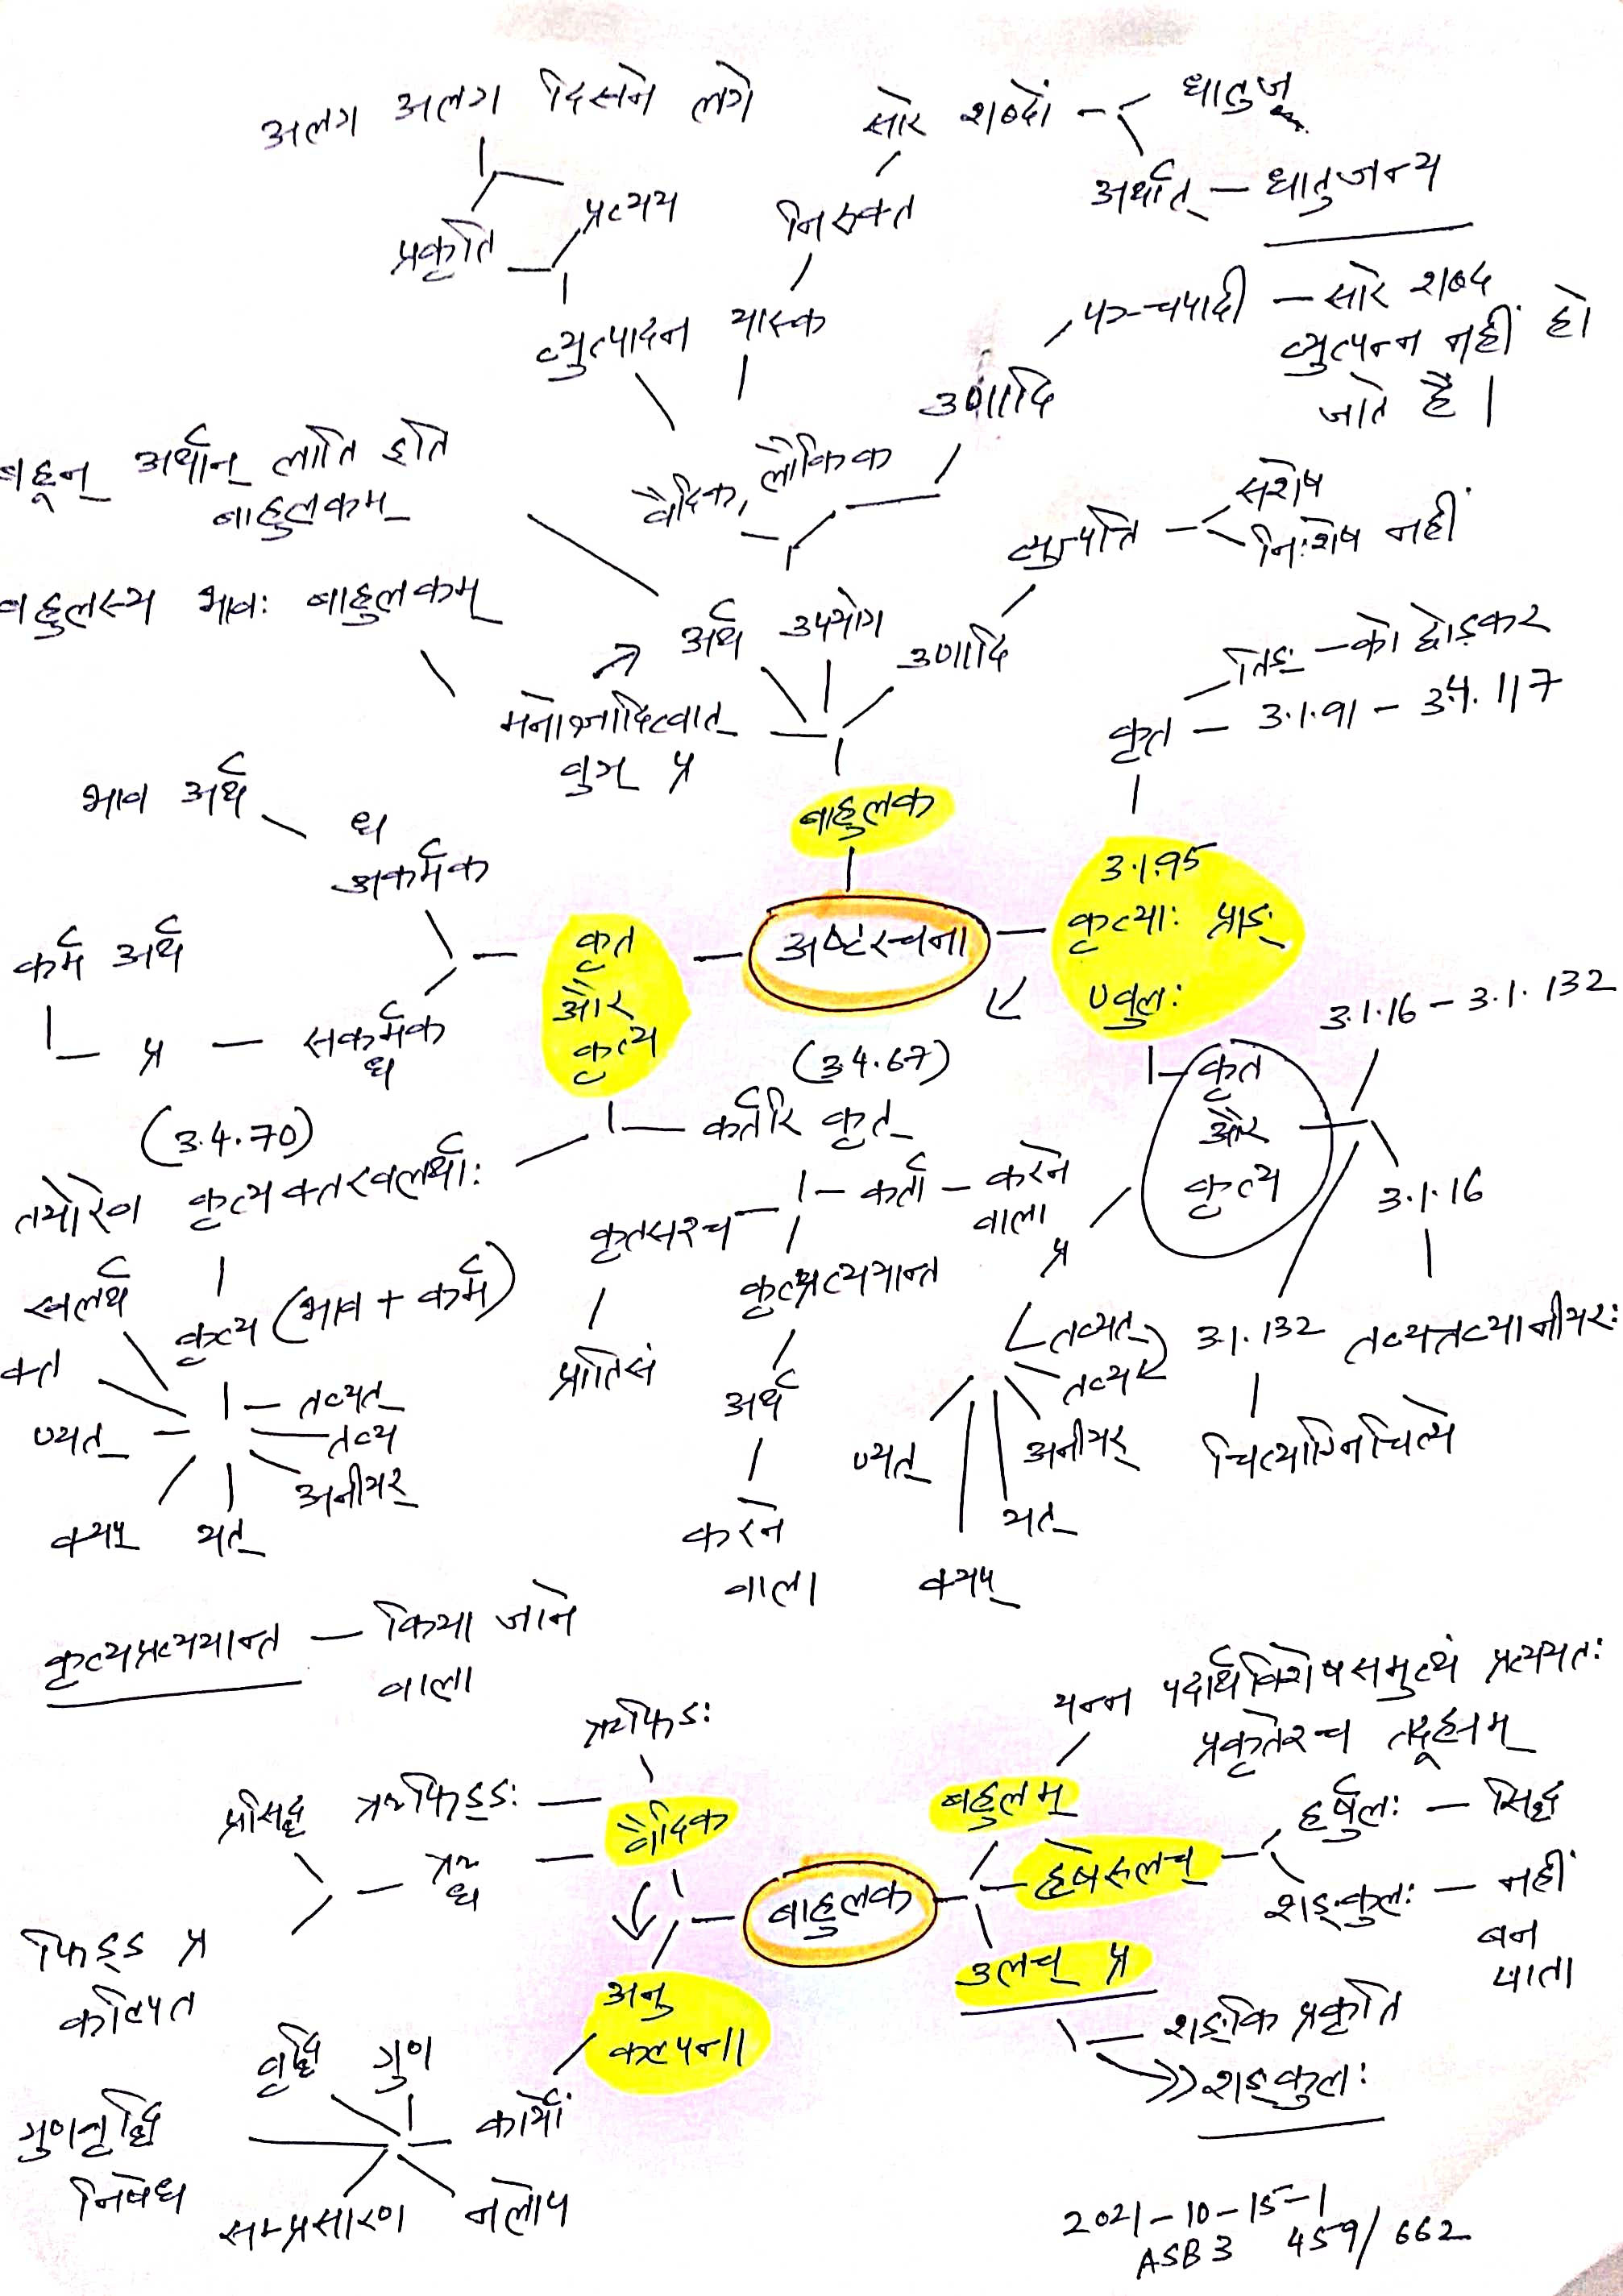 अलग अलग दिखने लगे
सारे शब्दों - धातुज
अर्थात् - धातुजन्य
प्रकृति
प्रत्यय
निरुक्त
व्युत्पादन
यास्क
उणादि
पञ्चपादी - सारे शब्द
व्युत्पन्न नहीं हो
जाते हैं।
बहून् अर्थान् लाति इति
बाहुलकम्
वैदिक, लौकिक
व्युत्पत्ति
सशेष
निःशेष नहीं
बहुलस्य भावः बाहुलकम्
अर्थ
उपयोग
उणादि
तिङ् - को छोड़कर
कृत - 3.1.91 - 3.4.117
मनोज्ञादित्वात्
वुञ् प्र
भाव अर्थ
ध
अकर्मक
बाहुलक
3.1.95
कृत्याः प्राङ्
ण्वुलः
कर्म अर्थ
प्र - सकर्मक
ध
कृत
और
कृत्य
अष्टरचना
3.1.16 - 3.1.132
(3.4.67)
कर्तरि कृत्
कृत
और
कृत्य
(3.4.70)
तयोरेव कृत्यक्तखलर्थाः
कर्ता - करने
वाला
प्र
3.1.16
खलर्थ
कृत्य (भाव + कर्म)
कृत्प्रत्ययान्त
क्त
ण्यत्
क्यप्
यत्
तव्यत्
तव्य
अनीयर्
प्रातिसं
अर्थ
करने
वाला
तव्यत्
तव्य
अनीयर्
यत्
क्यप्
ण्यत्
3.1.132
तव्यत्तव्यानीयरः
चित्याग्निचित्ये
कृत्यप्रत्ययान्त - किया जाने
वाला
यन्न पदार्थविशेषसमुत्थं प्रत्ययतः
प्रकृतेश्च तदूह्यम्
ऋफिडः
प्रसिद्ध
ऋफिड्डः
वैदिक
ध
बहुलम्
हृषेरुलच्
हर्षुलः - सिद्ध
शङ्कुलः - नहीं
बन
पाता
बाहुलक
फिड्ड प्र
कल्पित
अनु
कल्पना
उलच् प्र
शङ्कि प्रकृति
शङ्कुलः
वृद्धि
गुण
कार्यों
गुणवृद्धि
निषेध
सम्प्रसारण
नलोप
2021-10-15-1
ASB3 459/662